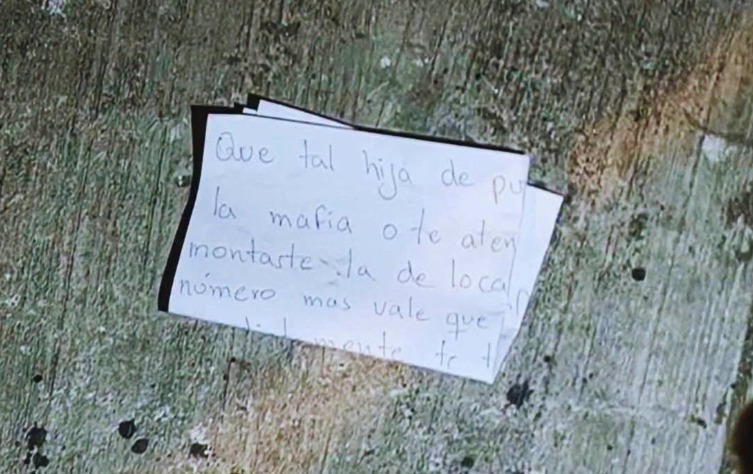 Que tal hija de pu
la mafia o te aten
montaste la de loca
número mas vale que
mente te t